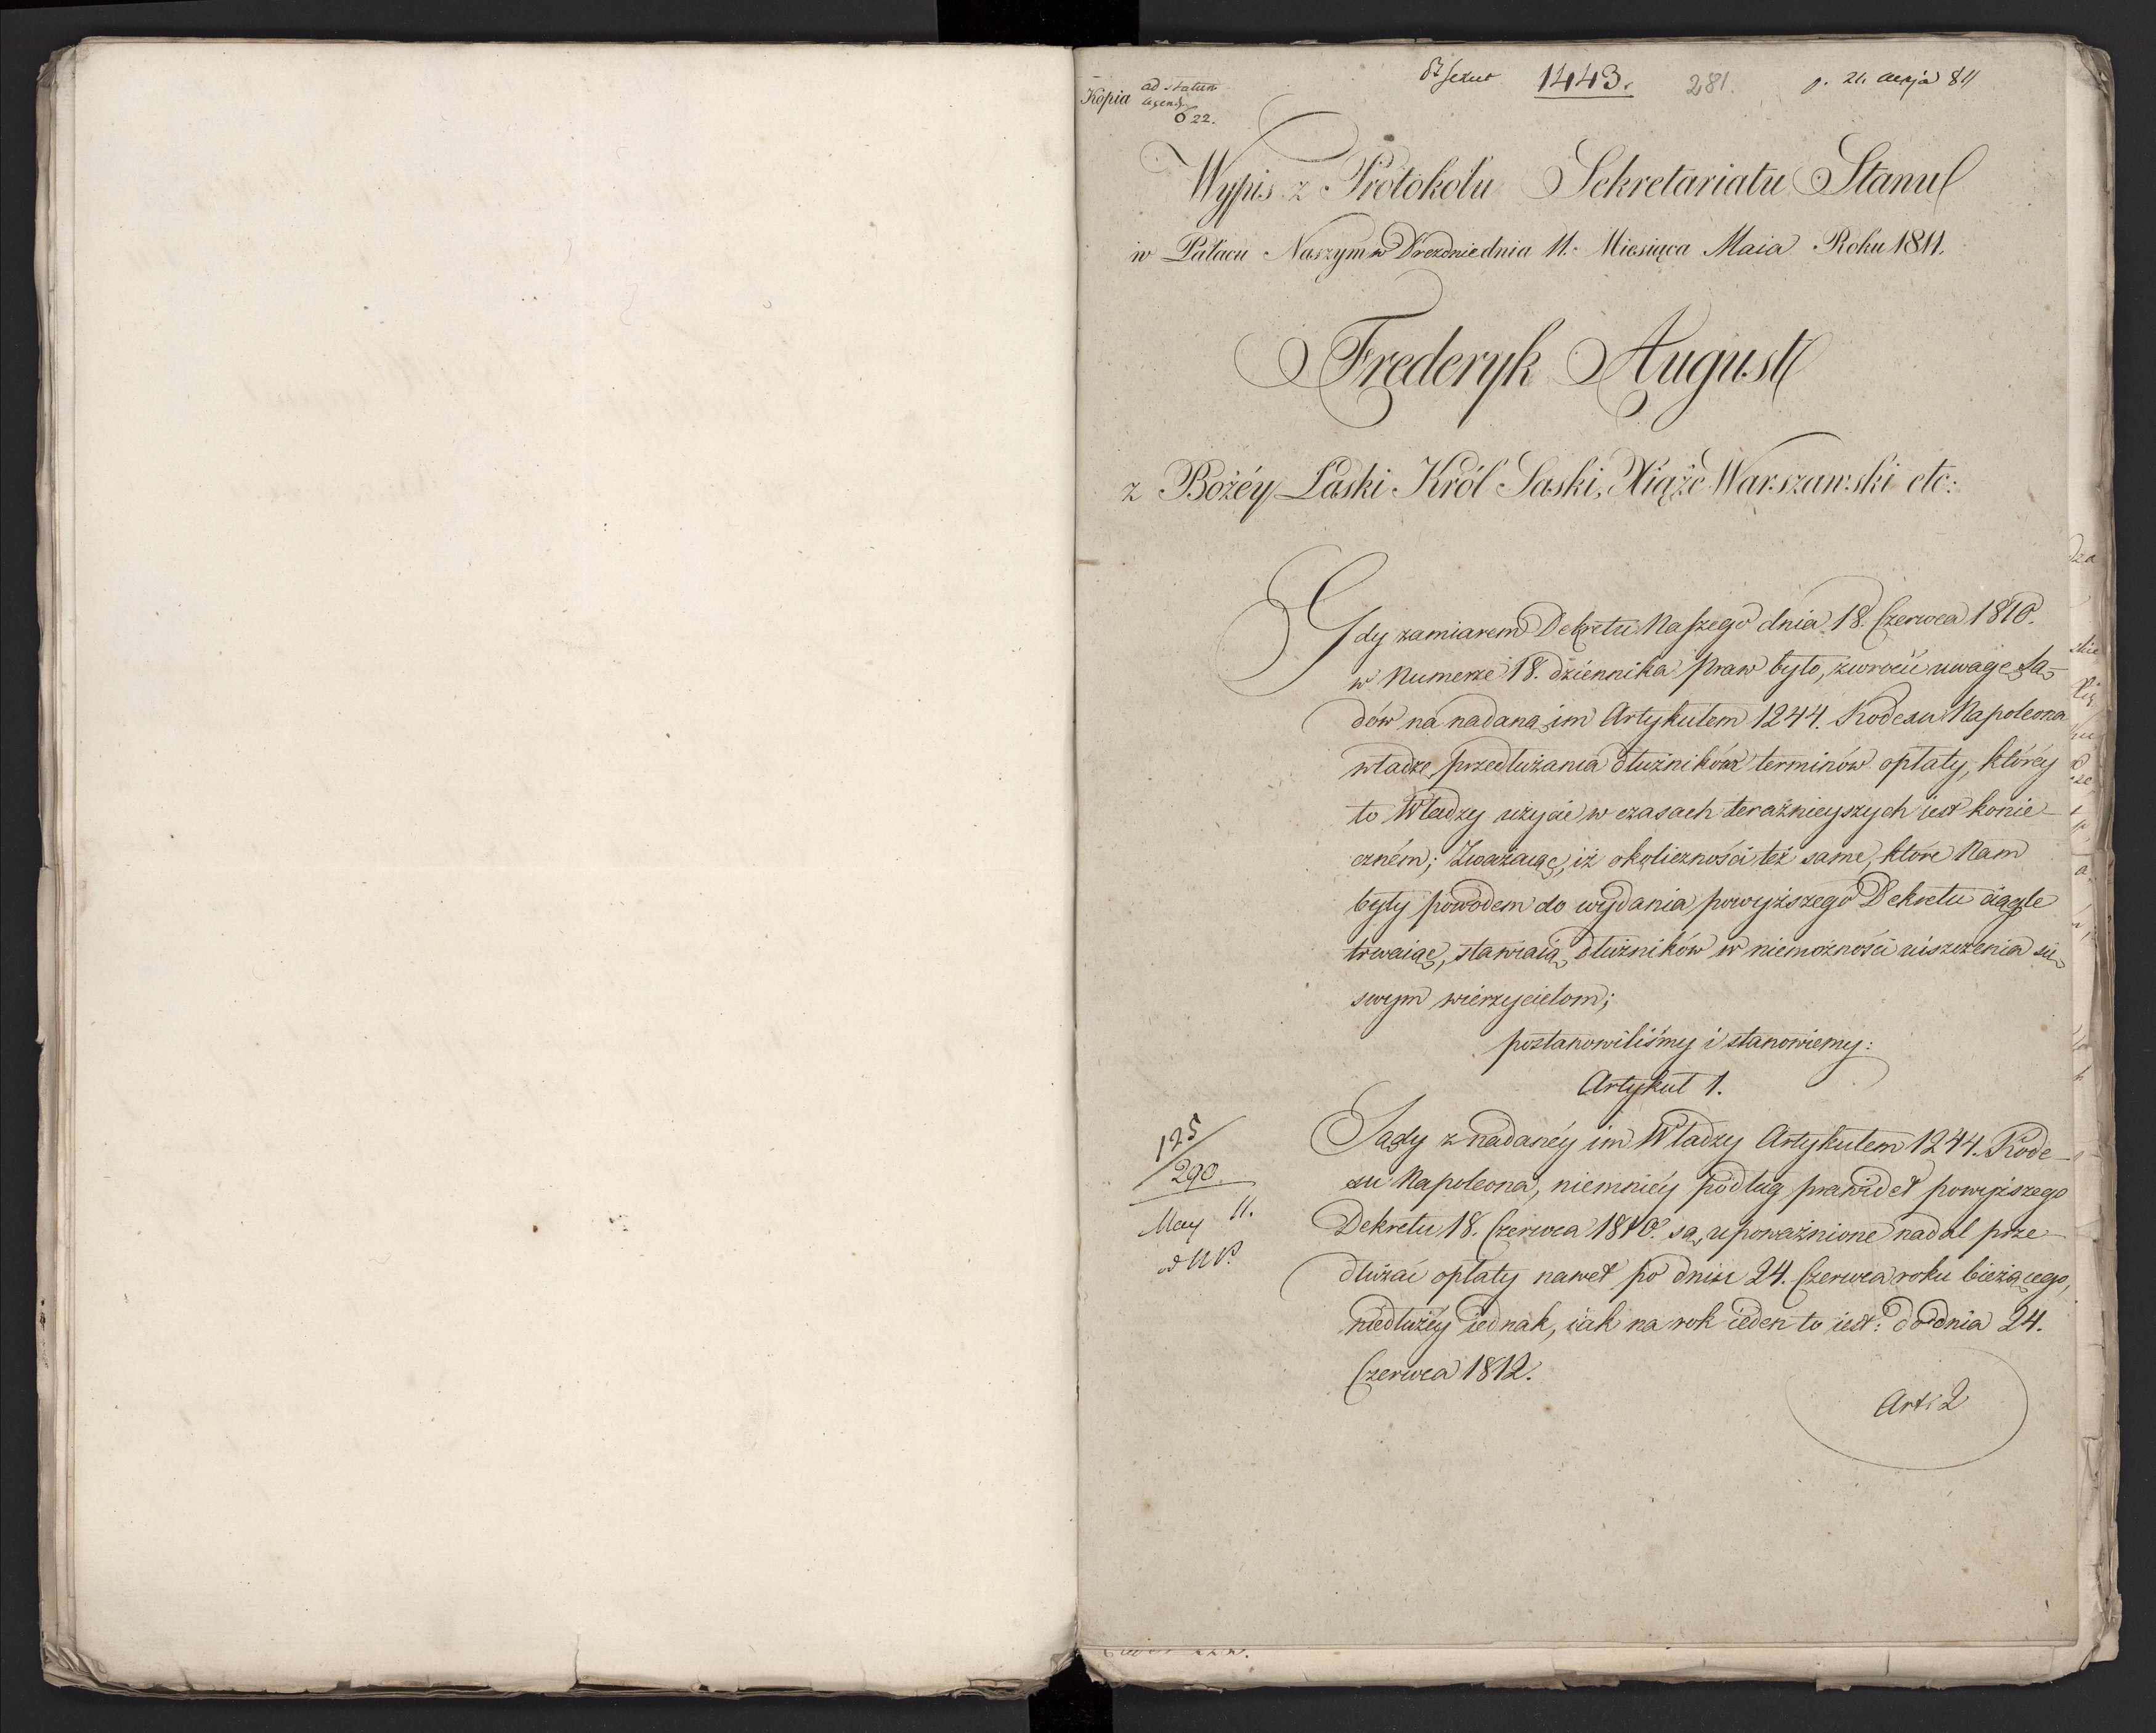 Kopia ad statum
agend
622.
1443. 281.
Wypis z Protokołu Sekretariatu Stanu
w Pałacu Naszym w Dreźnie dnia 11. Miesiąca Maia Roku 1811.
Frederyk August
z Bożéy Łaski Król Saski, Xiąże Warszawski etc:
Gdy zamiarem Dekretu Naszego dnia 18. Czerwca 1810.
w Numerze 18. dziennika Praw było, zwrócić uwagę Są-
dów na nadaną im Artykułem 1244. Kodexu Napoleona
władzę przedłużania dłużników terminów opłaty, któréy
to Władzy użycie w czasach teraźnieyszych iest konie-
czném; Zważaiąc, iż okoliczności też same, które Nam
były powodem do wydania powyższego Dekretu ciągle
trwaiąc, stawiaią dłużników w niemożności uiszczenia się
swym wierzycielom;
postanowiliśmy i stanowiemy:
Artykuł 1.
Sądy z nadanéy im Władzy Artykułem 1244. Kode-
xu Napoleona, niemniéy podług prawideł powyższego
Dekretu 18. Czerwca 1810. są upoważnione nadal prze-
dłużać opłaty nawet po dniu 24. Czerwca roku bieżącego,
niedłużéy iednak, iak na rok ieden to iest: do dnia 24.
Czerwca 1812.
Art: 2
125
290.
May 11.